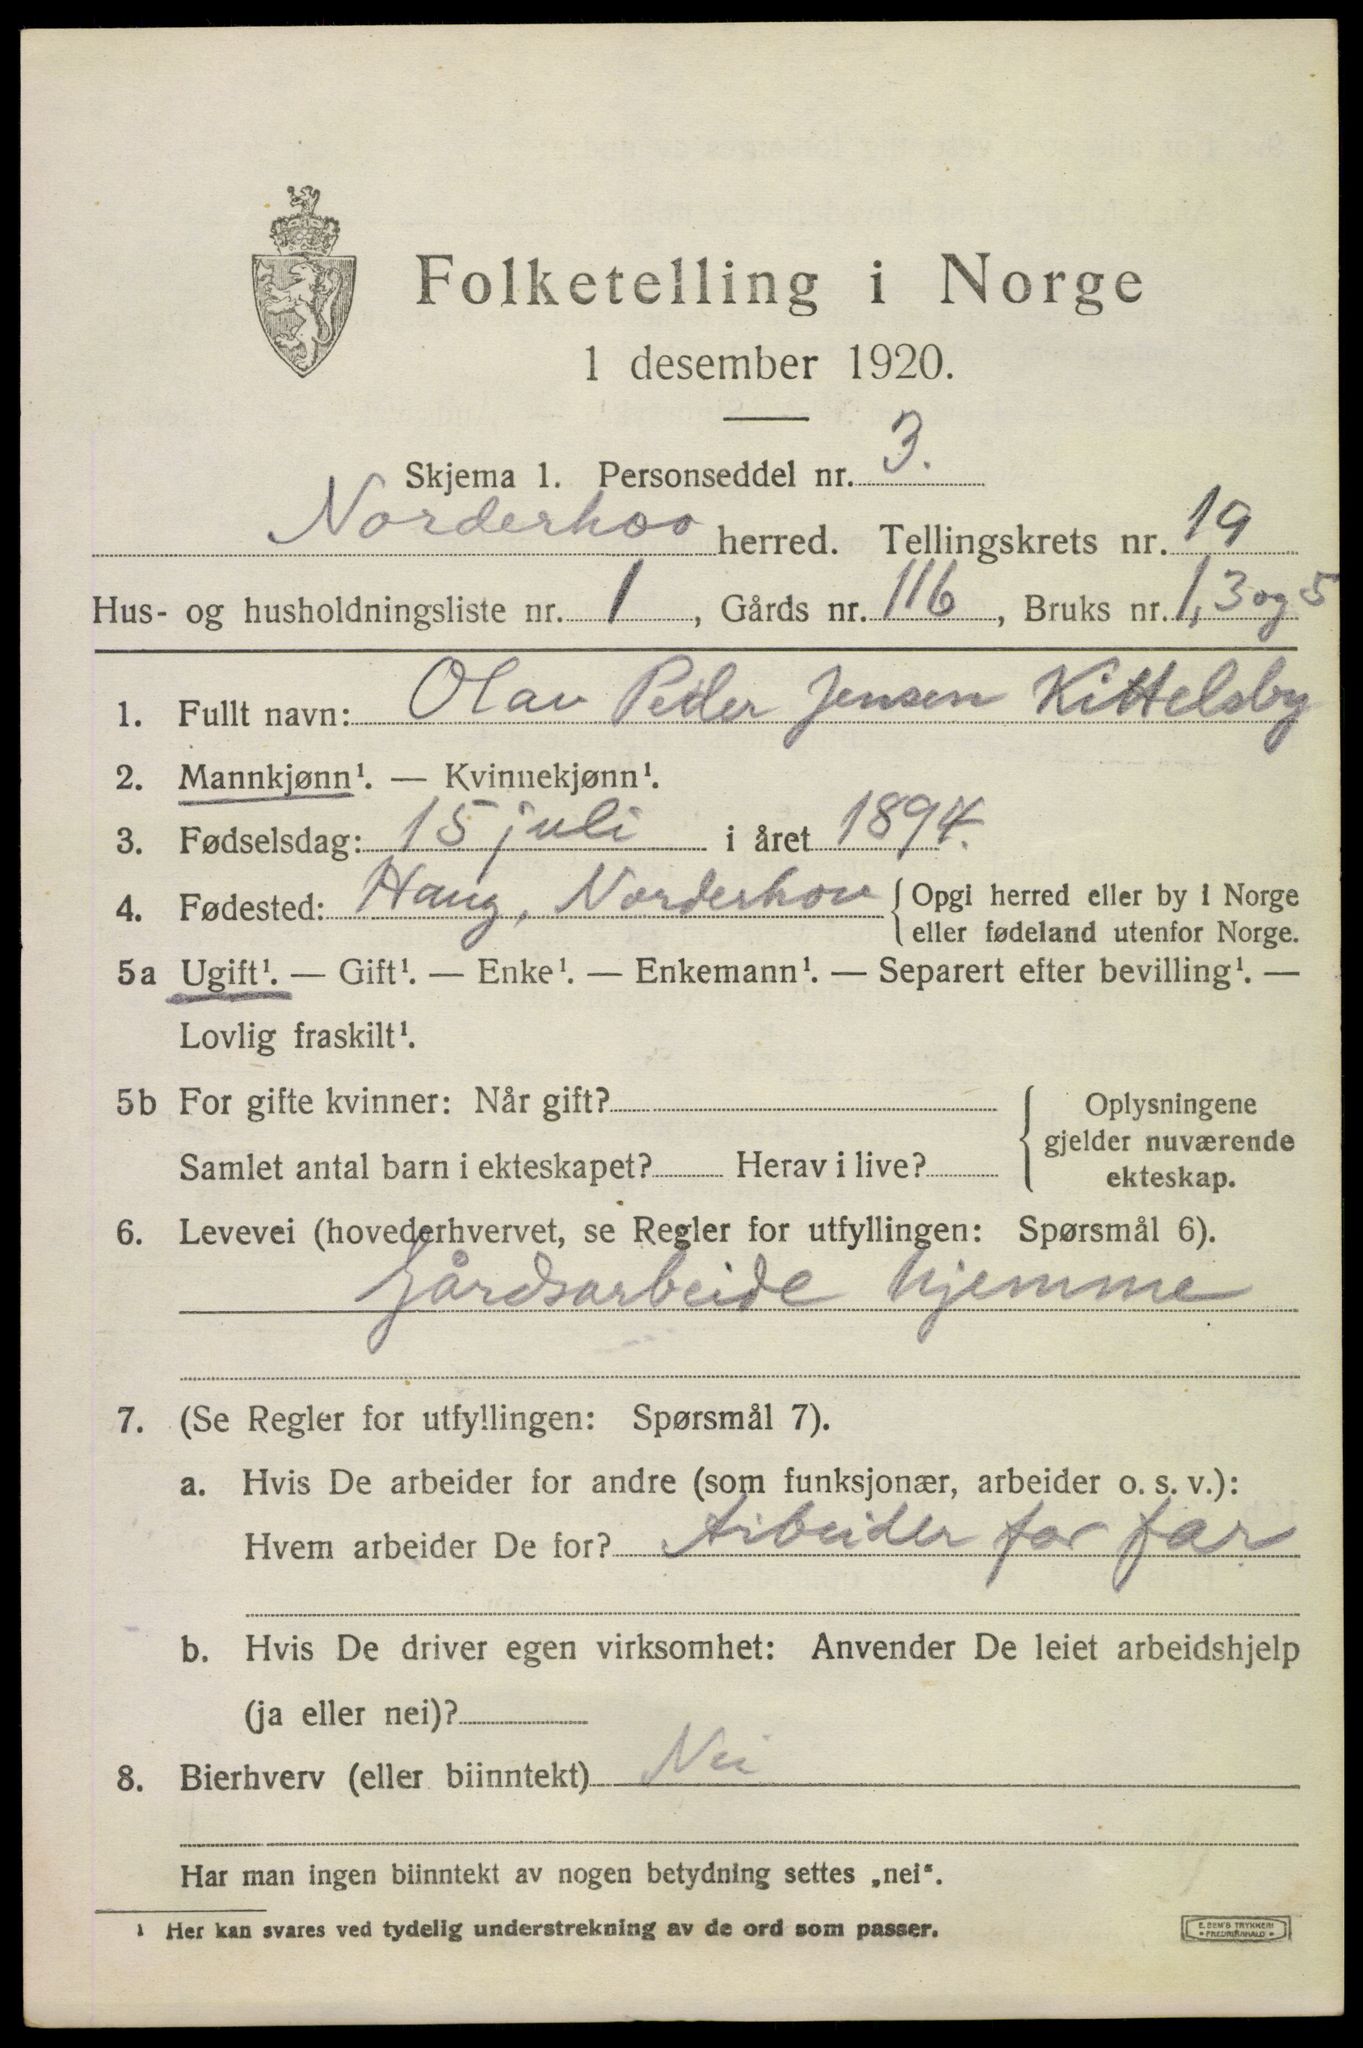 Folketelling i Norge
1 desember 1920.
Skjema 1. Personseddel nr. 3.
Norderhov herred. Tellingskrets nr. 19
Hus- og husholdningsliste nr. 1, Gårds nr. 116, Bruks nr. 1, 3 og 5
1. Fullt navn: Olav Peder Jensen Kittelsby
2. Mannkjønn¹. — Kvinnekjønn¹.
3. Fødselsdag: 15 juli i året 1894.
4. Fødested: Haug, Norderhov { Opgi herred eller by i Norge
eller fødeland utenfor Norge.
5a Ugift¹. — Gift¹. — Enke¹. — Enkemann¹. — Separert efter bevilling¹. —
Lovlig fraskilt¹.
5b For gifte kvinner: Når gift?
Samlet antal barn i ekteskapet? Herav i live?
Oplysningene
gjelder nuværende
ekteskap.
6. Levevei (hovederhvervet, se Regler for utfyllingen: Spørsmål 6).
Gårdsarbeide hjemme
7. (Se Regler for utfyllingen: Spørsmål 7).
a. Hvis De arbeider for andre (som funksjonær, arbeider o. s. v.):
Hvem arbeider De for? Arbeider for far
b. Hvis De driver egen virksomhet: Anvender De leiet arbeidshjelp
(ja eller nei)?
8. Bierhverv (eller biinntekt) Nei
Har man ingen biinntekt av nogen betydning settes „nei“.
¹ Her kan svares ved tydelig understrekning av de ord som passer.
E. SEM'S TRYKKERI
• FREDRIKSHALD •